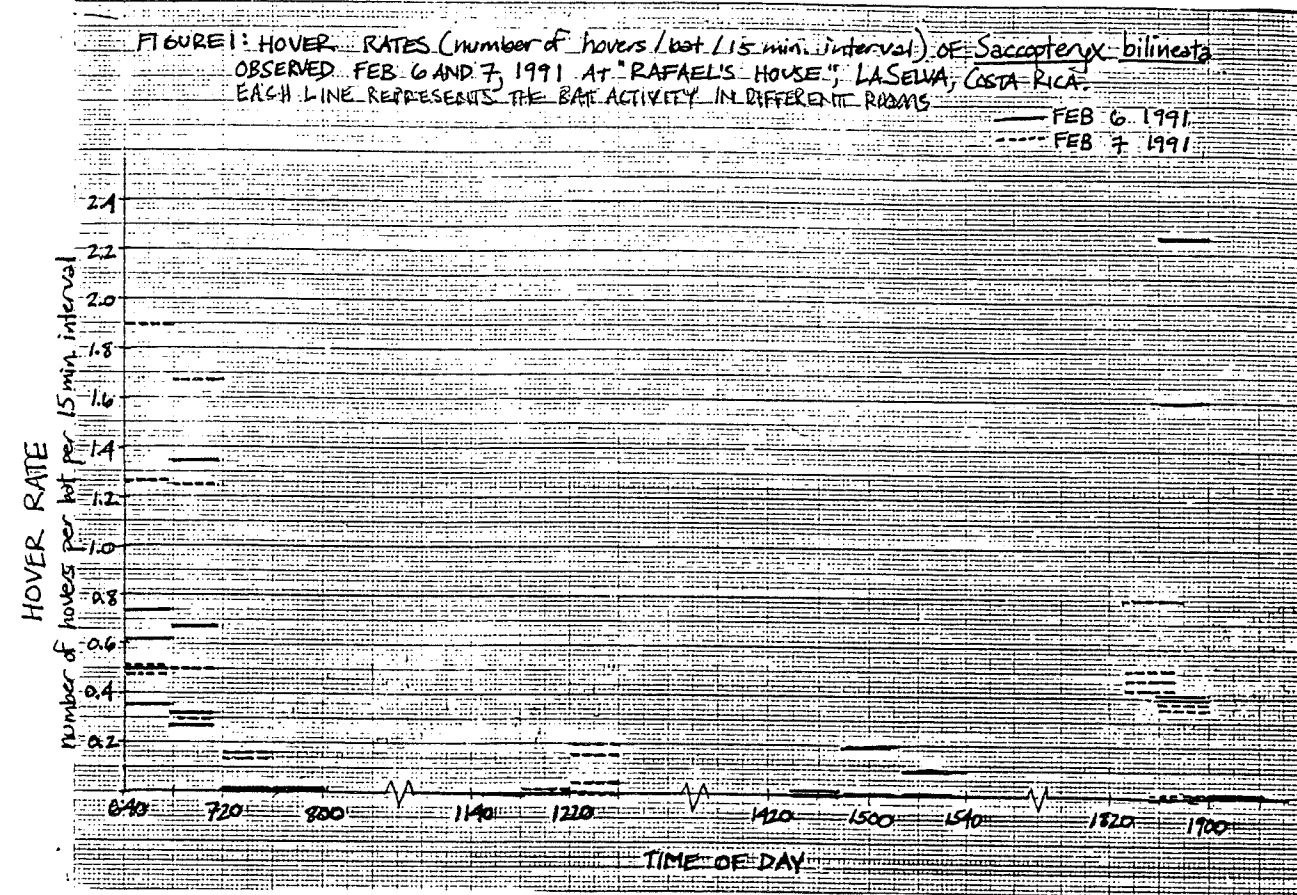 FIGURE 1: HOVER RATES (number of hovers / bat / 15 min. interval) OF Saccopteryx bilineata
OBSERVED FEB 6 AND 7, 1991 AT "RAFAEL'S HOUSE", LA SELVA, COSTA RICA.
EACH LINE REPRESENTS THE BAT ACTIVITY IN DIFFERENT ROOMS
FEB 6 1991
FEB 7 1991
2.4
2.2
2.0
1.8
1.6
1.4
1.2
1.0
0.8
0.6
0.4
0.2
HOVER RATE
number of hovers per bat per 15 min. interval
640
720
800
1140
1220
1420
1500
1540
1820
1900
TIME OF DAY